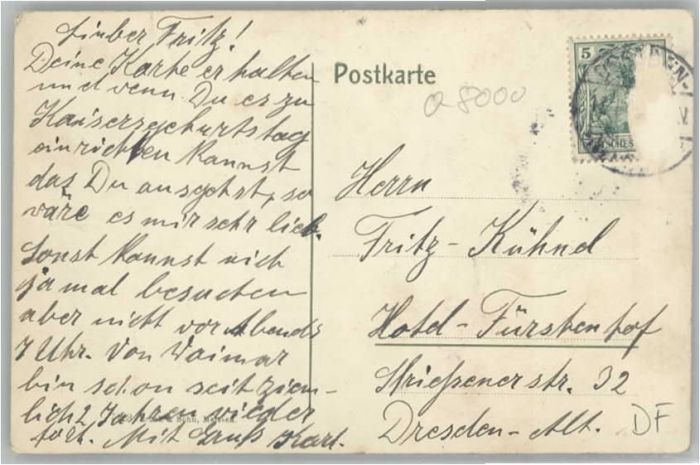 Lieber Fritz!
Deine Karte erhalten
und wenn Du es zu
Kaisersgeburtstag
einrichten kannst
das Du ausgehst, so
wäre es mir sehr lieb.
Sonst kannst mich
ja mal besuchen
aber nicht vor Abends
7 Uhr. Von Waimar
bin schon seit ziem-
lich 2 Jahren wieder
fort. Mit Gruß Karl.
Postkarte
a 8000
5
Herrn
Fritz-Kühnel
Hotel-Fürstenhof
Strießenerstr. 32
Dresden-Alt.
DF